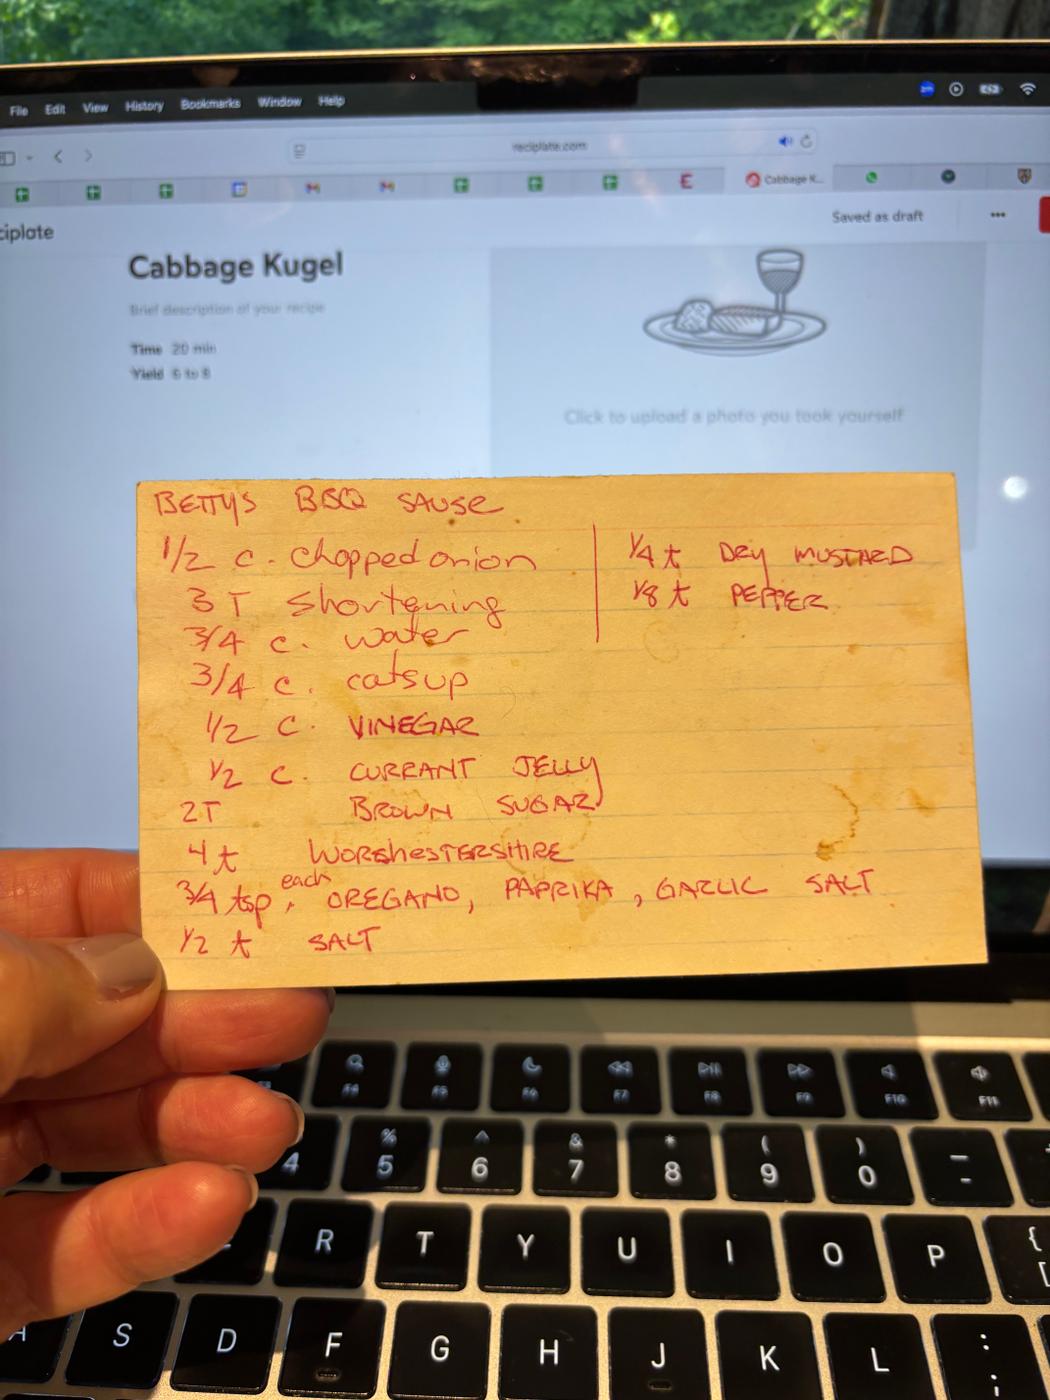 File Edit View History Bookmarks Window Help
reciplate.com
Cabbage K...
ciplate
Saved as draft
Cabbage Kugel
Brief description of your recipe
Time 20 min
Yield 6 to 8
Click to upload a photo you took yourself
BETTY'S BBQ SAUSE
1/2 c. chopped onion
3 T shortening
3/4 c. water
3/4 c. catsup
1/2 c. VINEGAR
1/2 c. CURRANT JELLY
2T BROWN SUGAR
4 t WORSHESTERSHIRE
3/4 tsp, each OREGANO, PAPRIKA, GARLIC SALT
1/2 t SALT
1/4 t DRY MUSTARD
1/8 t PEPPER
F4 F5 F6 F7 F8 F9 F10 F11
4 % 5 ^ 6 & 7 * 8 ( 9 ) 0 _ -
R T Y U I O P { [
A S D F G H J K L : ;